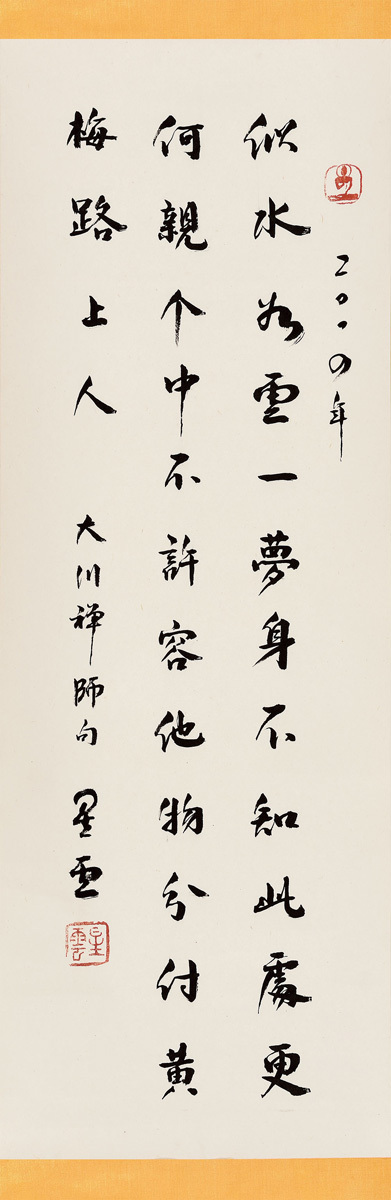 二〇〇四年
似水如雲一夢身不知此處更
何親个中不許容他物分付黃
梅路上人
大川禅師句
星雲
星雲